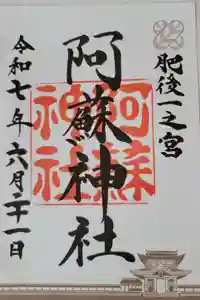 肥後一之宮
阿蘇神社
阿蘇
神社
令和七年六月二十一日